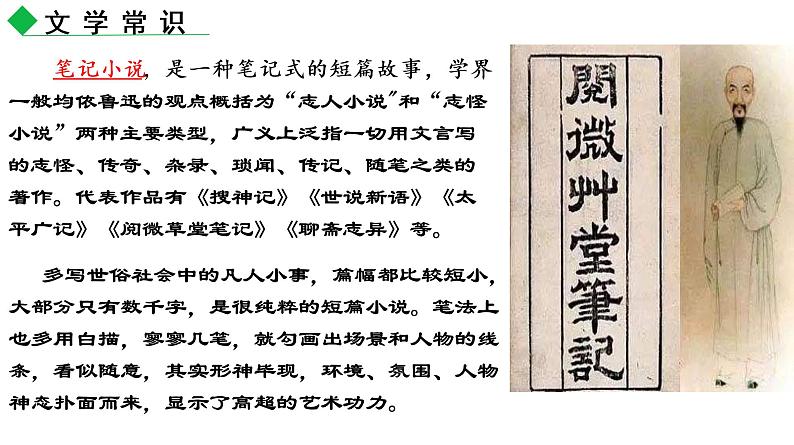 文学常识
笔记小说，是一种笔记式的短篇故事，学界
一般均依鲁迅的观点概括为“志人小说”和“志怪
小说”两种主要类型，广义上泛指一切用文言写
的志怪、传奇、杂录、琐闻、传记、随笔之类的
著作。代表作品有《搜神记》《世说新语》《太
平广记》《阅微草堂笔记》《聊斋志异》等。
多写世俗社会中的凡人小事，篇幅都比较短小，
大部分只有数千字，是很纯粹的短篇小说。笔法上
也多用白描，寥寥几笔，就勾画出场景和人物的线
条，看似随意，其实形神毕现，环境、氛围、人物
神态扑面而来，显示了高超的艺术功力。
閱微艸堂筆記